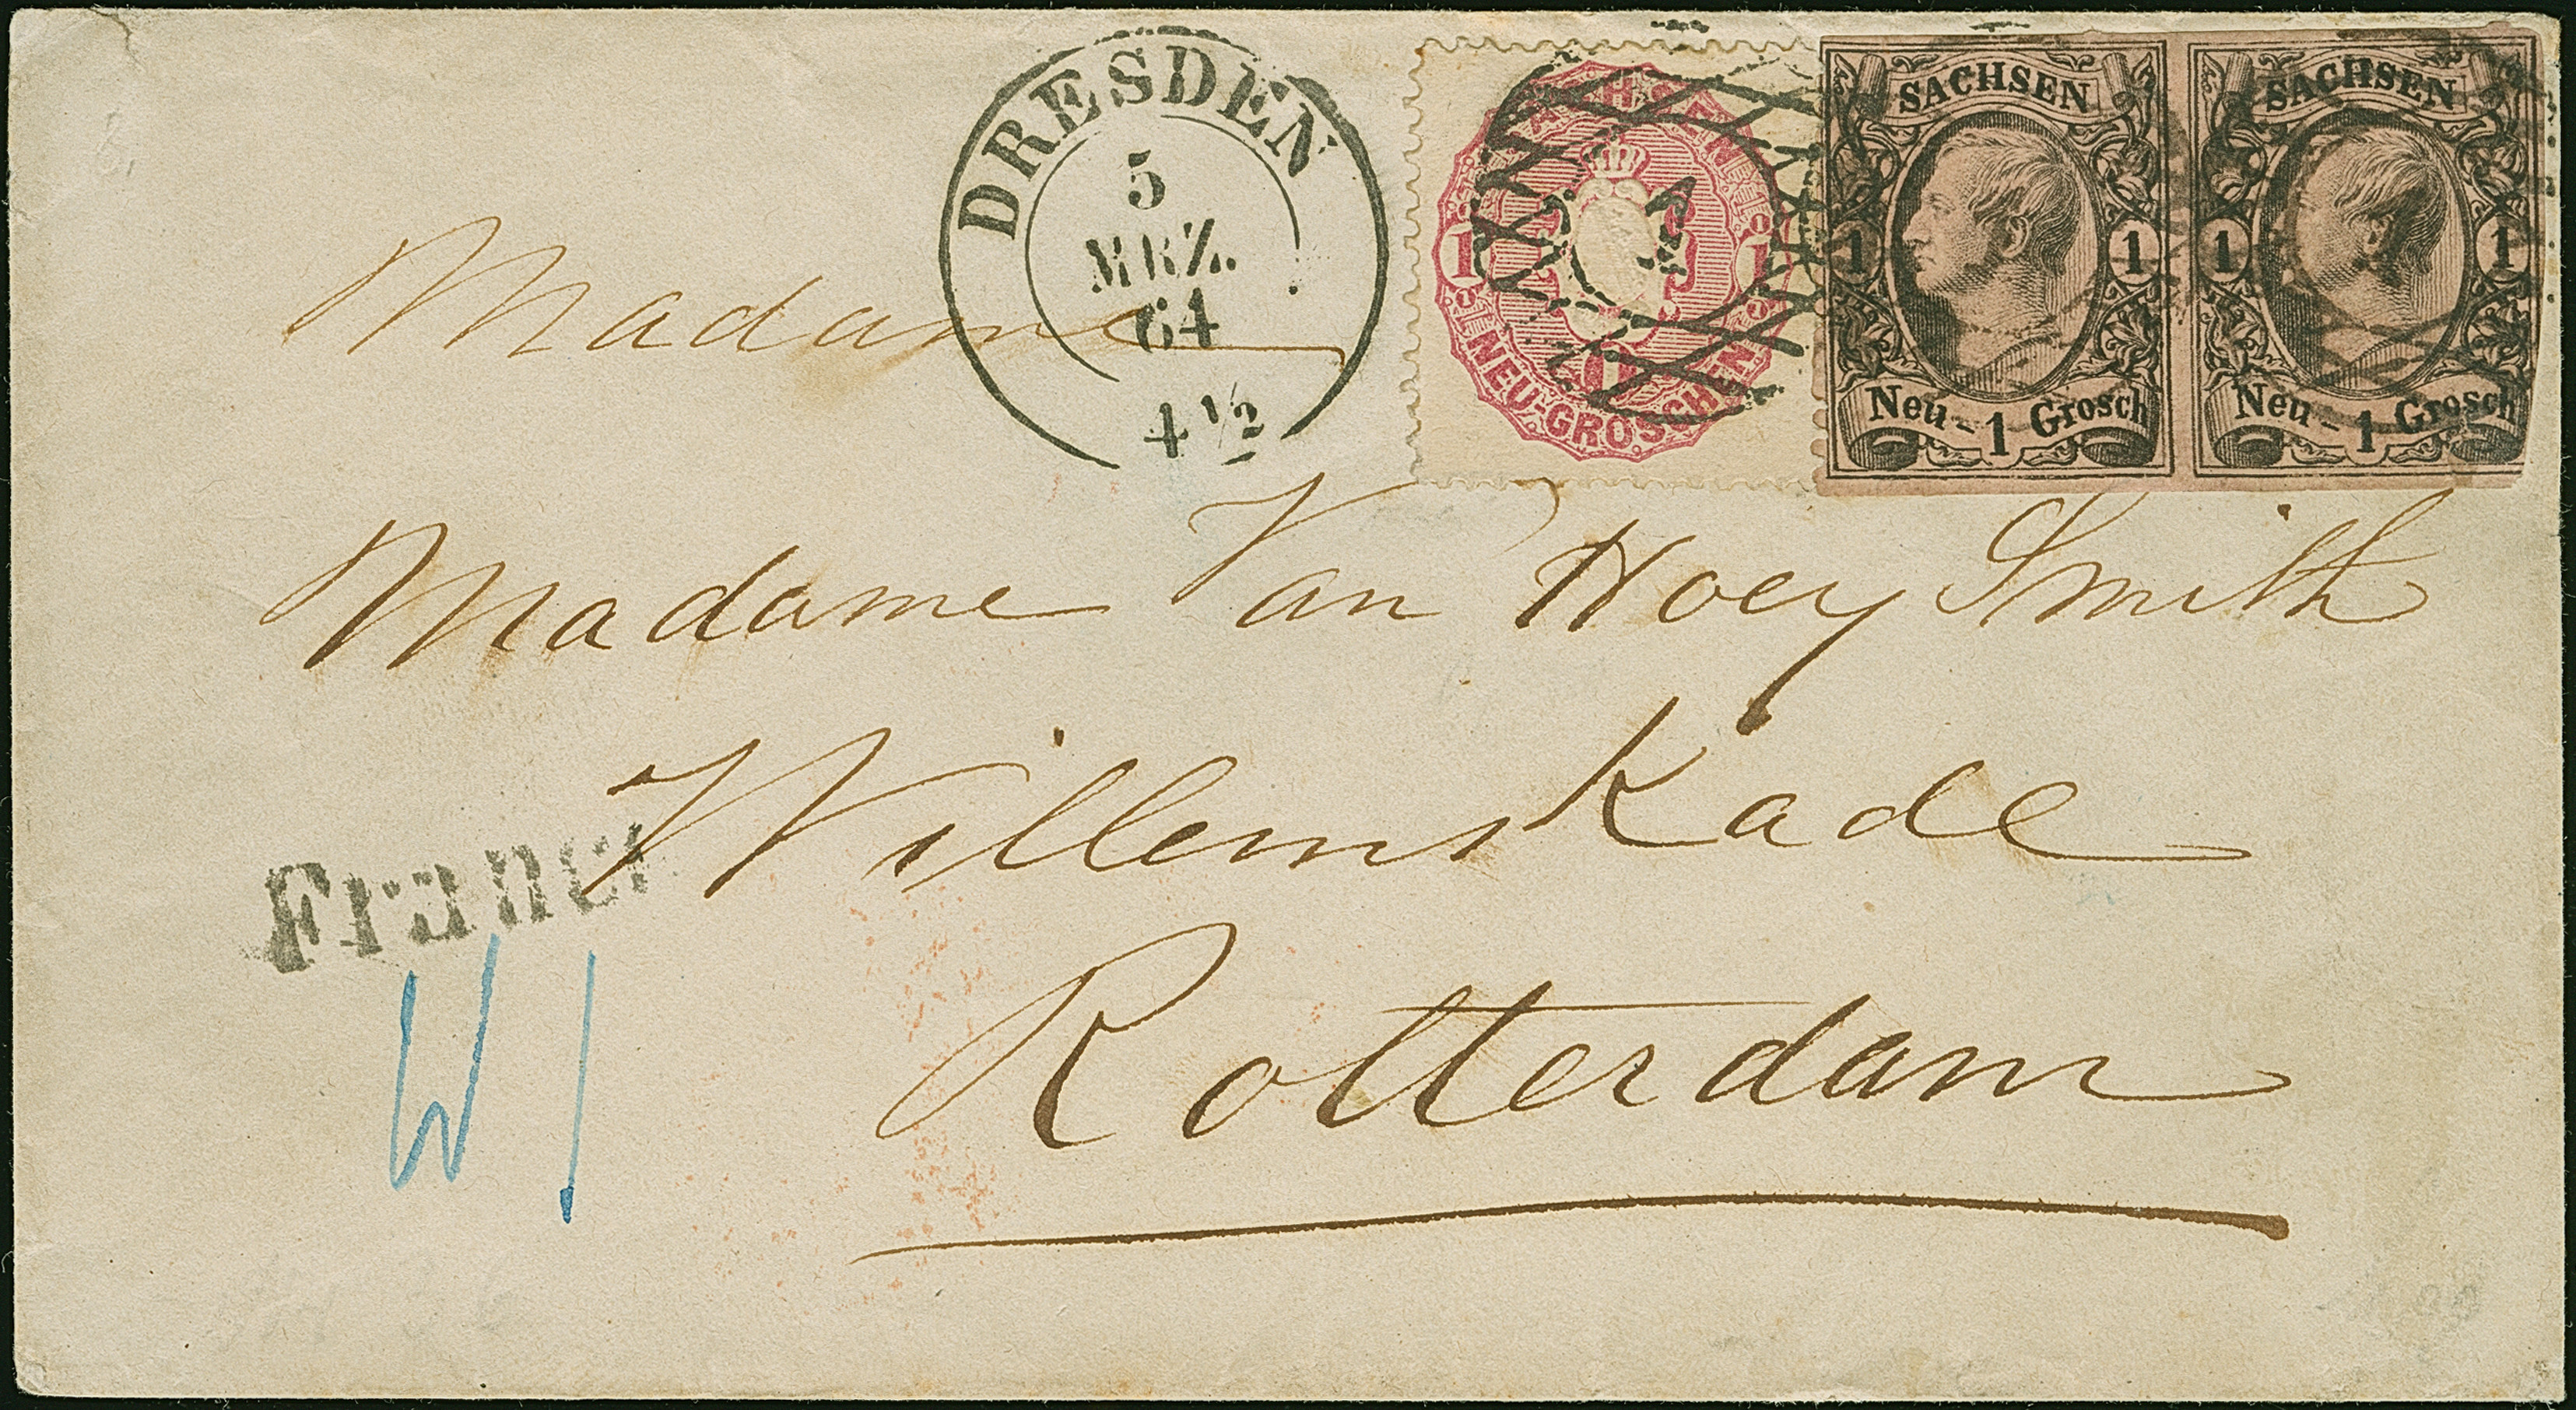 DRESDEN
5
MRZ.
64
4 ½
SACHSEN
1 1
1 NEU-GROSCHEN
SACHSEN
1 1
Neu - 1 Grosch
SACHSEN
1 1
Neu - 1 Grosch
Madame
Madame Van Hoey Smith
Willems Kade
Franco
W 1
Rotterdam